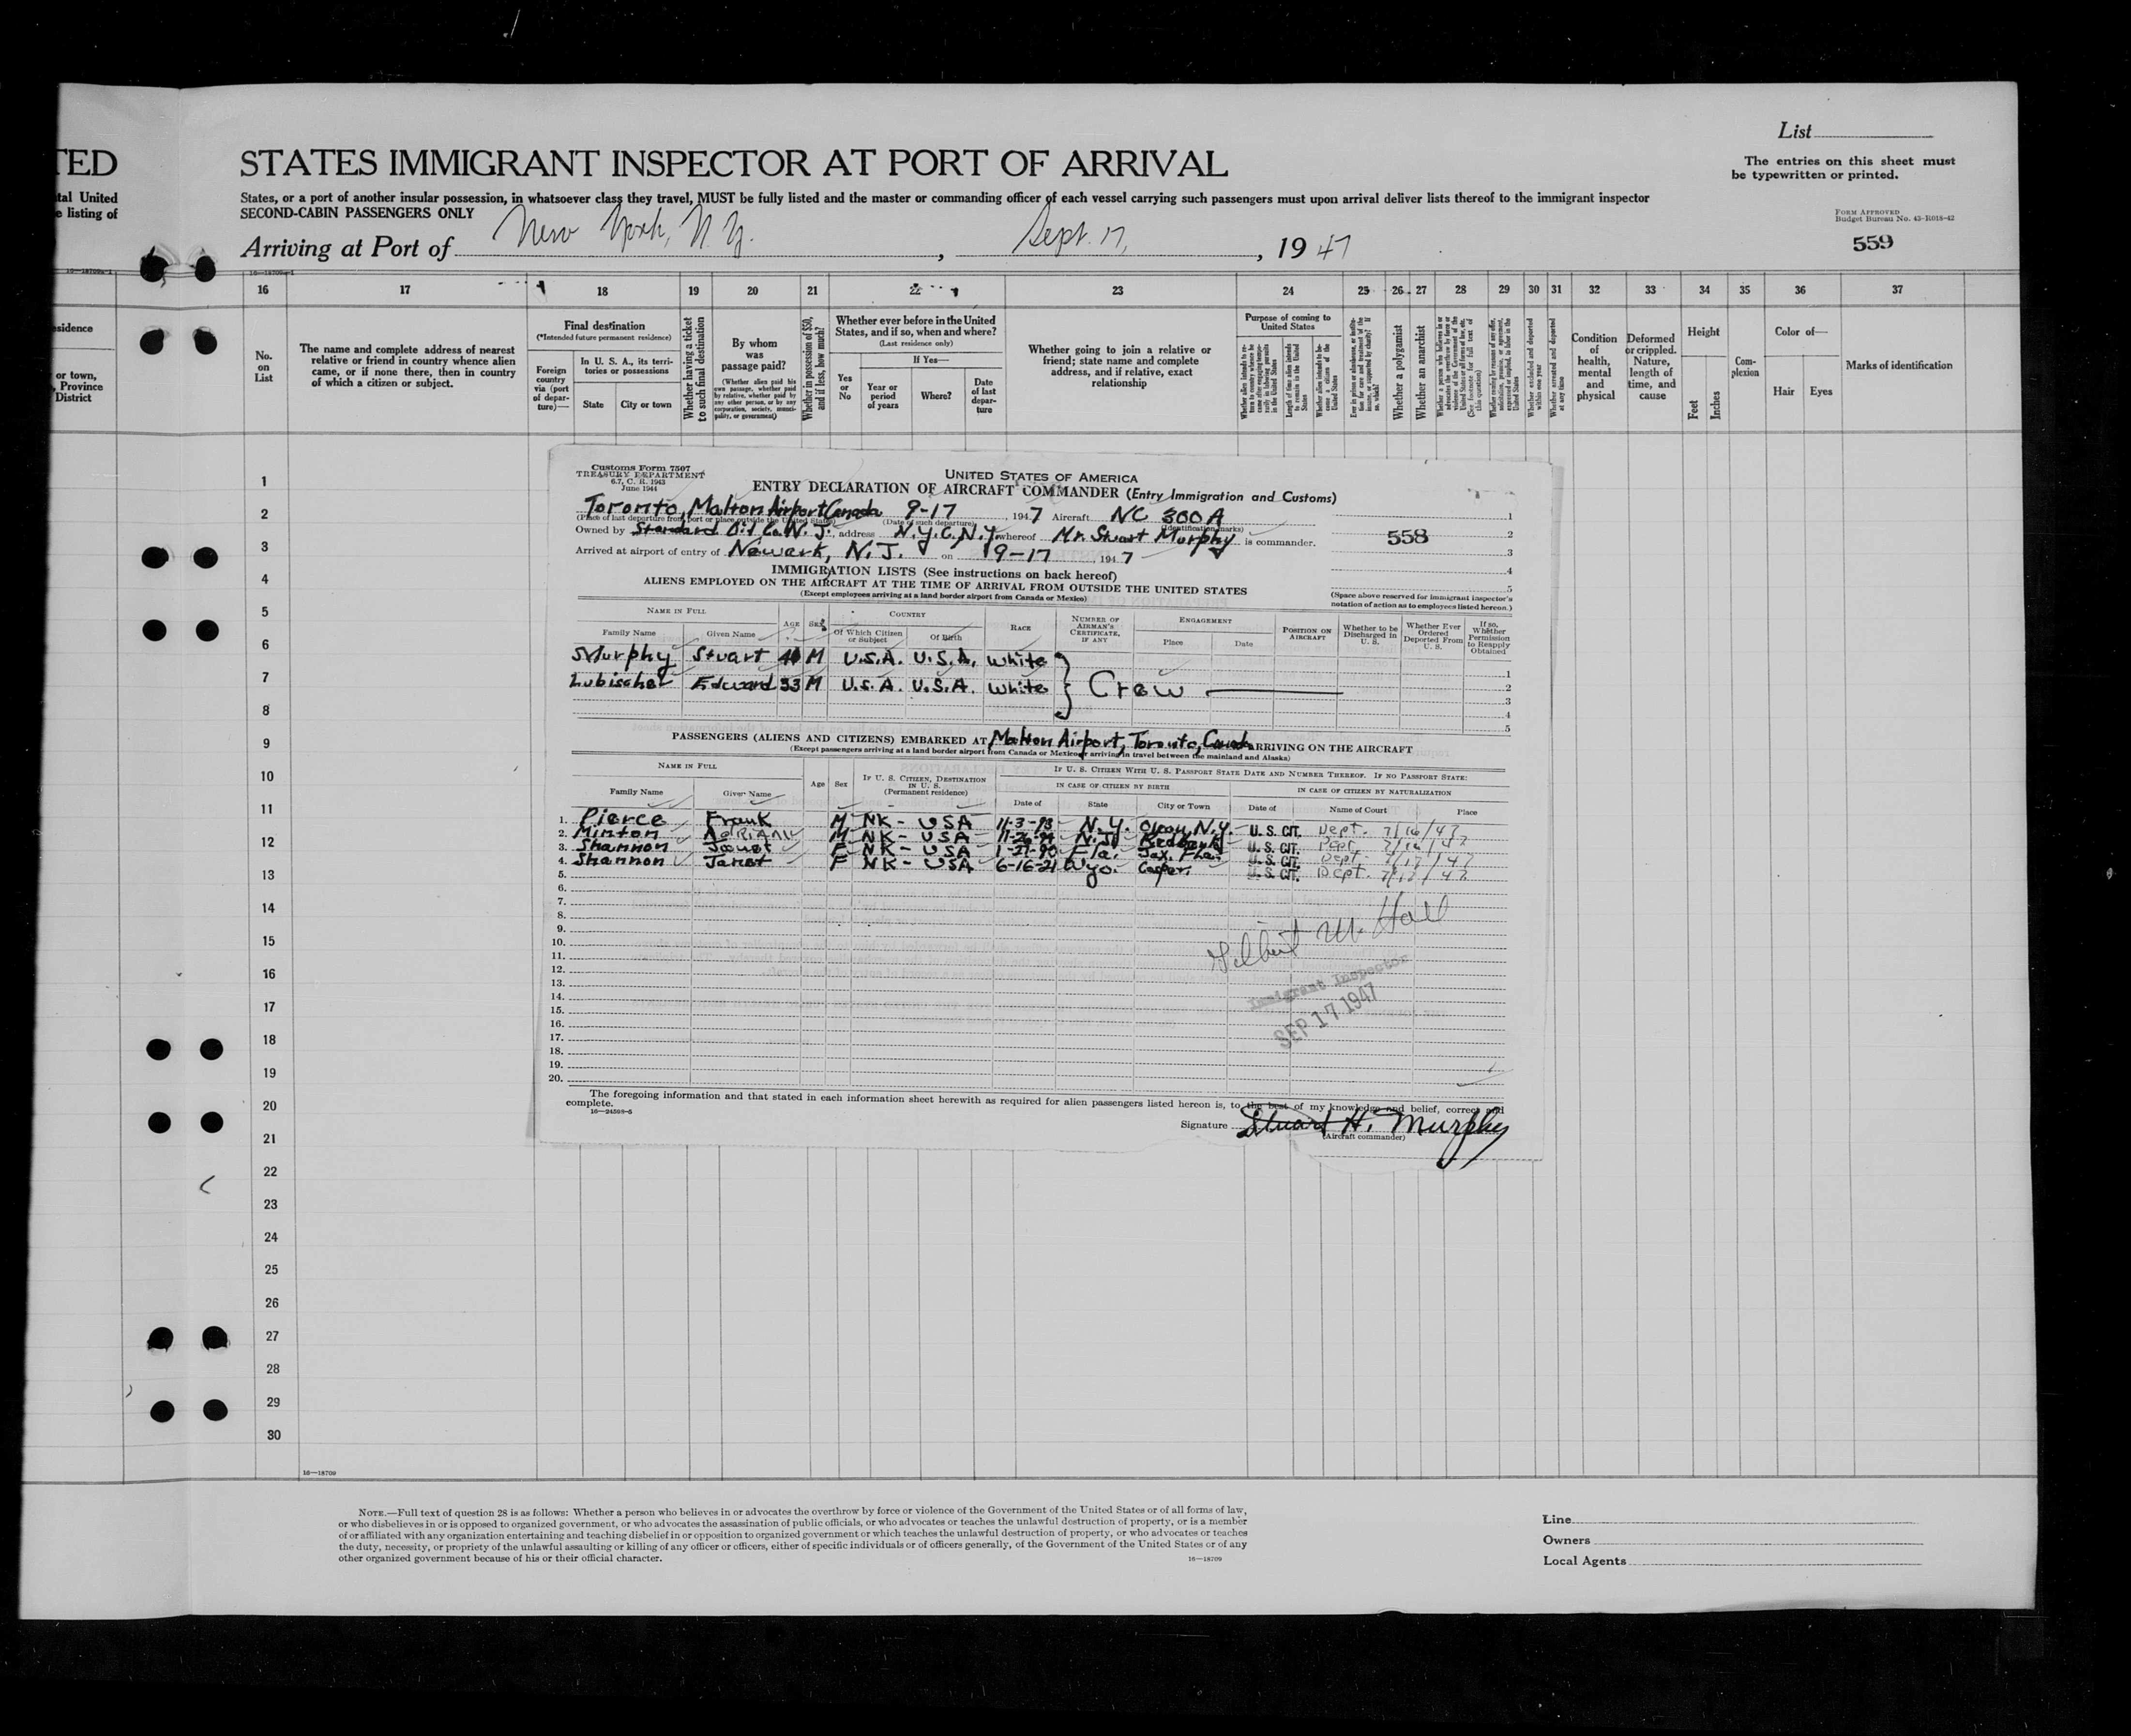 List
TED
STATES IMMIGRANT INSPECTOR AT PORT OF ARRIVAL
The entries on this sheet must
be typewritten or printed.
tal United
e listing of
States, or a port of another insular possession, in whatsoever class they travel, MUST be fully listed and the master or commanding officer of each vessel carrying such passengers must upon arrival deliver lists thereof to the immigrant inspector
SECOND-CABIN PASSENGERS ONLY
FORM APPROVED
Budget Bureau No. 43-R018-42
Arriving at Port of New York, N.Y., Sept. 17, 1947
559
16 17 18 19 20 21 22 23 24 25 26 27 28 29 30 31 32 33 34 35 36 37
esidence
or town,
, Province
District
No.
on
List
The name and complete address of nearest
relative or friend in country whence alien
came, or if none there, then in country
of which a citizen or subject.
Final destination
(*Intended future permanent residence)
Foreign
country
via (port
of depar-
ture)—
In U. S. A., its terri-
tories or possessions
State
City or town
Whether having a ticket
to such final destination
By whom
was
passage paid?
(Whether alien paid his
own passage, whether paid
by relative, whether paid by
any other person, or by any
corporation, society, munici-
pality, or government)
Whether in possession of $50,
and if less, how much?
Whether ever before in the United
States, and if so, when and where?
(Last residence only)
Yes
or
No
If Yes—
Year or
period
of years
Where?
Date
of last
depar-
ture
Whether going to join a relative or
friend; state name and complete
address, and if relative, exact
relationship
Purpose of coming to
United States
Whether a polygamist
Whether an anarchist
Condition
of
health,
mental
and
physical
Deformed
or crippled.
Nature,
length of
time, and
cause
Height
Feet
Inches
Com-
plexion
Color of—
Hair
Eyes
Marks of identification
1
2
3
4
5
6
7
8
9
10
11
12
13
14
15
16
17
18
19
20
21
22
23
24
25
26
27
28
29
30
Customs Form 7507
TREASURY DEPARTMENT
6.7, C. R. 1943
June 1944
UNITED STATES OF AMERICA
ENTRY DECLARATION OF AIRCRAFT COMMANDER (Entry Immigration and Customs)
Toronto, Malton Airport Canada 9-17, 1947 Aircraft NC 300A
(Place of last departure from port or place outside the United States) (Date of such departure) (Identification marks)
Owned by Standard Oil Co. N.J., address N.Y.C., N.Y. whereof Mr. Stuart Murphy is commander.
Arrived at airport of entry of Newark, N.J. on 9-17, 1947
558
1
2
3
4
5
(Space above reserved for immigrant inspector's
notation of action as to employees listed hereon.)
IMMIGRATION LISTS (See instructions on back hereof)
ALIENS EMPLOYED ON THE AIRCRAFT AT THE TIME OF ARRIVAL FROM OUTSIDE THE UNITED STATES
(Except employees arriving at a land border airport from Canada or Mexico)
NAME IN FULL
Family Name
Given Name
AGE
SEX
COUNTRY
Of Which Citizen
or Subject
Of Birth
RACE
NUMBER OF
AIRMAN'S
CERTIFICATE,
IF ANY
ENGAGEMENT
Place
Date
POSITION ON
AIRCRAFT
Whether to be
Discharged in
U. S.
Whether Ever
Ordered
Deported From
U. S.
If so,
Whether
Permission
to Reapply
Obtained
Murphy Stuart M U.S.A. U.S.A. white 1
Edward 33 M U.S.A. U.S.A. white Crew 2
3
4
5
PASSENGERS (ALIENS AND CITIZENS) EMBARKED AT Malton Airport, Toronto, Canada ARRIVING ON THE AIRCRAFT
(Except passengers arriving at a land border airport from Canada or Mexico or arriving in travel between the mainland and Alaska)
NAME IN FULL
Family Name
Given Name
Age
Sex
IF U. S. CITIZEN, DESTINATION
IN U. S.
(Permanent residence)
IF U. S. CITIZEN WITH U. S. PASSPORT STATE DATE AND NUMBER THEREOF. IF NO PASSPORT STATE:
IN CASE OF CITIZEN BY BIRTH
Date of
State
City or Town
IN CASE OF CITIZEN BY NATURALIZATION
Date of
Name of Court
Place
1. Pierce Frank M NK - USA 11-3-93 N.Y. Olean, N.Y. U. S. CIT. Dept. 7/16/47
2. Minton Adrian M NK - USA N.J. Redbank U. S. CIT. Dept. 7/16/47
3. Shannon Janet F NK - USA 1-21-90 Fla. Jax. Fla. U. S. CIT. Dept.
4. Shannon Janet F NK - USA 6-16-21 Wyo. Casper. U. S. CIT. Dept.
5.
6.
7.
8.
9.
10.
11.
12.
13.
14.
15.
16.
17.
18.
19.
20.
M. Hall
Immigrant Inspector
SEP 17 1947
The foregoing information and that stated in each information sheet herewith as required for alien passengers listed hereon is, to the best of my knowledge and belief, correct and
complete.
16—24598-6
Signature Stuart H. Murphy
(Aircraft commander)
16—18709
NOTE.—Full text of question 28 is as follows: Whether a person who believes in or advocates the overthrow by force or violence of the Government of the United States or of all forms of law,
or who disbelieves in or is opposed to organized government, or who advocates the assassination of public officials, or who advocates or teaches the unlawful destruction of property, or is a member
of or affiliated with any organization entertaining and teaching disbelief in or opposition to organized government or which teaches the unlawful destruction of property, or who advocates or teaches
the duty, necessity, or propriety of the unlawful assaulting or killing of any officer or officers, either of specific individuals or of officers generally, of the Government of the United States or of any
other organized government because of his or their official character.
16—18709
Line
Owners
Local Agents